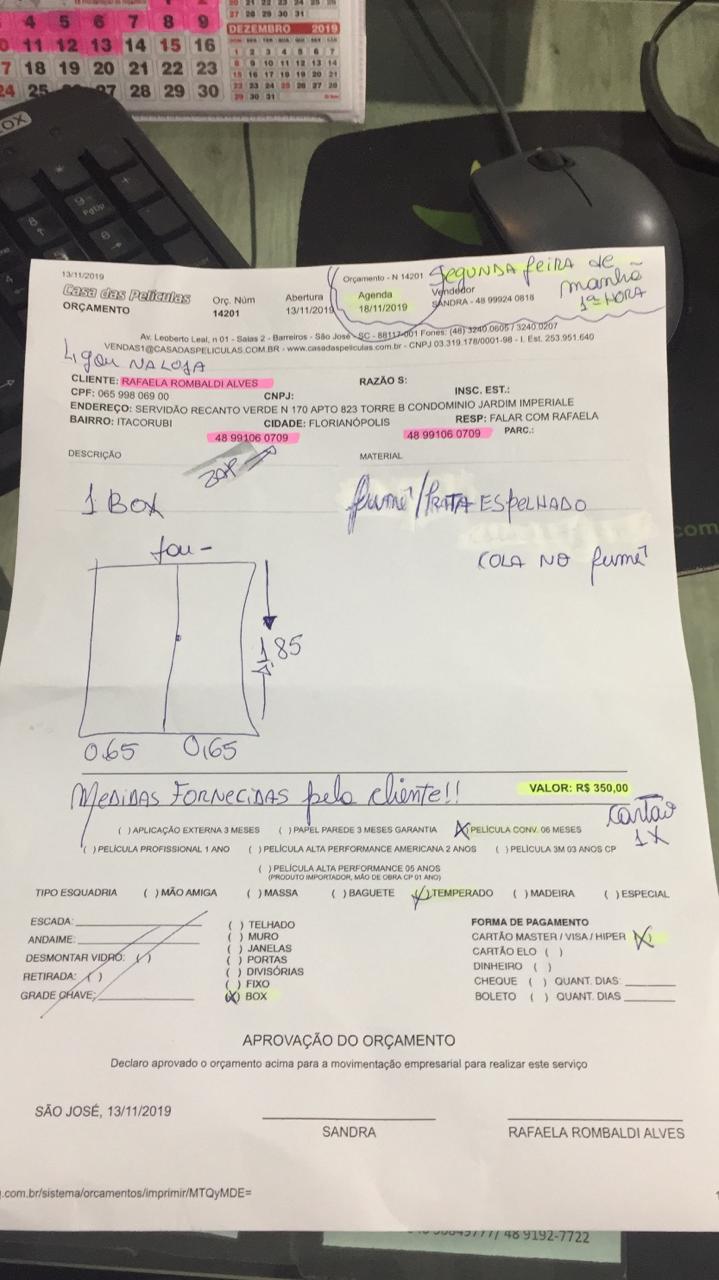 4 5 6 7 8 9
11 12 13 14 15 16
7 18 19 20 21 22 23
24 25 27 28 29 30
DEZEMBRO 2019
1 2 3 4 5 6 7
8 9 10 11 12 13 14
15 16 17 18 19 20 21
22 23 24 25 26 27 28
29 30 31
13/11/2019
Orçamento - N 14201
SEGUNDA feiRA de manhã 1ª HORA
Casa das Películas
ORÇAMENTO
Orç. Núm
14201
Abertura
13/11/2019
Agenda
18/11/2019
Vendedor
SANDRA - 48 99924 0818
Av. Leoberto Leal, n 01 - Salas 2 - Barreiros - São José - SC - 88117-001 Fones: (48) 3240.0605 / 3240.0207
VENDAS1@CASADASPELICULAS.COM.BR - www.casadaspeliculas.com.br - CNPJ 03.319.178/0001-98 - I. Est. 253.951.640
Ligou NA LOJA
CLIENTE: RAFAELA ROMBALDI ALVES RAZÃO S:
CPF: 065 998 069 00 CNPJ: INSC. EST.:
ENDEREÇO: SERVIDÃO RECANTO VERDE N 170 APTO 823 TORRE B CONDOMINIO JARDIM IMPERIALE
BAIRRO: ITACORUBI CIDADE: FLORIANÓPOLIS RESP: FALAR COM RAFAELA
48 99106 0709 48 99106 0709 PARC.:
DESCRIÇÃO MATERIAL
ZAP
1 BOX
fumê/PRATA ESPELHADO
COLA NO fumê
1,85
0,65 0,65
MEDIDAS FORNECIDAS pelo cliente!!
VALOR: R$ 350,00
Cartão 1X
( ) APLICAÇÃO EXTERNA 3 MESES ( ) PAPEL PAREDE 3 MESES GARANTIA (X) PELÍCULA CONV. 06 MESES
( ) PELÍCULA PROFISSIONAL 1 ANO ( ) PELÍCULA ALTA PERFORMANCE AMERICANA 2 ANOS ( ) PELÍCULA 3M 03 ANOS CP
( ) PELÍCULA ALTA PERFORMANCE 05 ANOS
(PRODUTO IMPORTADOR, MÃO DE OBRA CP 01 ANO)
TIPO ESQUADRIA ( ) MÃO AMIGA ( ) MASSA ( ) BAGUETE ( ) TEMPERADO ( ) MADEIRA ( ) ESPECIAL
ESCADA:
ANDAIME:
DESMONTAR VIDRO: ( )
RETIRADA: ( )
GRADE CHAVE:
( ) TELHADO
( ) MURO
( ) JANELAS
( ) PORTAS
( ) DIVISÓRIAS
( ) FIXO
(X) BOX
FORMA DE PAGAMENTO
CARTÃO MASTER / VISA / HIPER (X)
CARTÃO ELO ( )
DINHEIRO ( )
CHEQUE ( ) QUANT. DIAS:
BOLETO ( ) QUANT. DIAS
APROVAÇÃO DO ORÇAMENTO
Declaro aprovado o orçamento acima para a movimentação empresarial para realizar este serviço
SÃO JOSÉ, 13/11/2019
SANDRA
RAFAELA ROMBALDI ALVES
.com.br/sistema/orcamentos/imprimir/MTQyMDE=
48 9192-7722